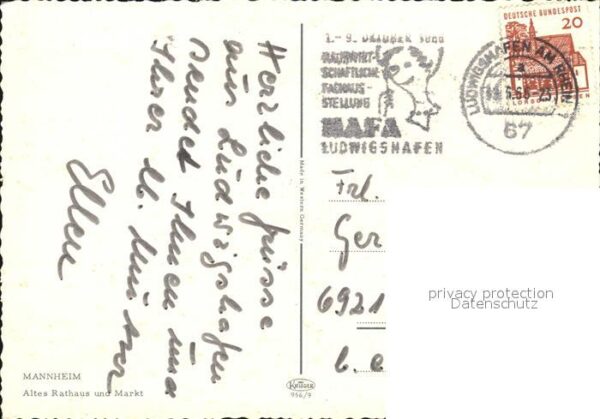 Herzliche Grüsse
aus Ludwigshafen
sendet Ihnen und
Ihrer lb. Mutter
Ellen
MANNHEIM
Altes Rathaus und Markt
Made in Western Germany
Krüger
956/9
1.-9. OKTOBER
HAUSWIRT-
SCHAFTLICHE
FACHAUS-
STELLUNG
HAFA
LUDWIGSHAFEN
DEUTSCHE BUNDESPOST
20
LUDWIGSHAFEN AM RHEIN
67
Frl.
Ger
6921
b.
privacy protection
Datenschutz